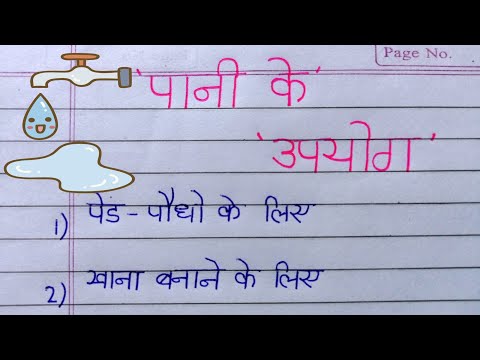 Page No.
'पानी के'
'उपयोग'
1) पेंड-पौधो के लिए
2) खाना बनाने के लिए